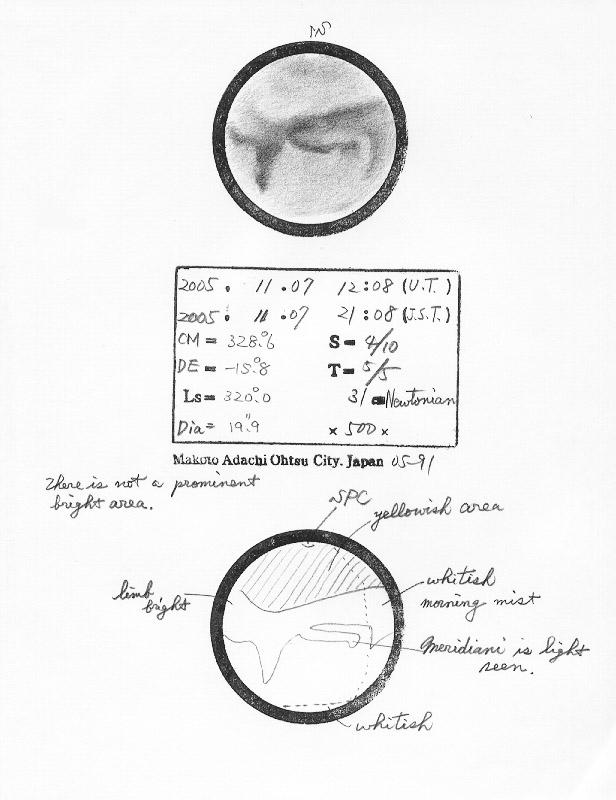 2005. 11.07 12:08 (U.T.)
2005. 11.07 21:08 (J.S.T.)
CM = 328.°6 S = 4/10
DE = -15.°8 T = 5/5
Ls = 320.°0 31 cm Newtonian
Dia = 19."9 × 500 ×
Makoto Adachi Ohtsu City. Japan 05-91
There is not a prominent
bright area.
SPC
yellowish area
limb
bright
whitish
morning mist
Meridiani is light
seen.
whitish